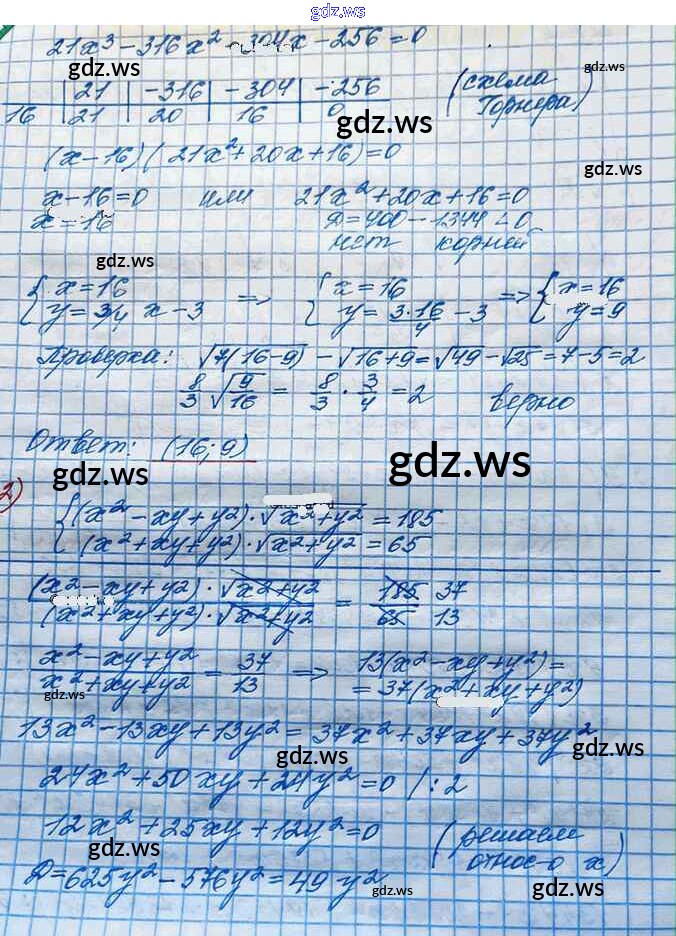 gdz.ws
21x³ - 316x² - 304x - 256 = 0
gdz.ws
gdz.ws
21 | -316 | -304 | -256 (схема
16 | 21 | 20 | 16 | 0 Горнера)
gdz.ws
(x-16)(21x²+20x+16)=0
gdz.ws
x-16=0 или 21x²+20x+16=0
x=16 D=400-1344<0
нет корней
gdz.ws
{x=16 => {x=16 => {x=16
y=3/4 x-3 y=3·16/4 -3 y=9
Проверка: √7(16-9) - √16+9 = √49 - √25 = 7-5=2
8/3 √9/16 = 8/3 · 3/4 = 2 верно
Ответ: (16; 9)
gdz.ws
gdz.ws
2) {(x²-xy+y²)·√x²+y² = 185
(x²+xy+y²)·√x²+y² = 65
(x²-xy+y²)·√x²+y² / (x²+xy+y²)·√x²+y² = 185/65 37/13
x²-xy+y² / x²+xy+y² = 37/13 => 13(x²-xy+y²)=
= 37(x²+xy+y²)
gdz.ws
13x²-13xy+13y² = 37x²+37xy+37y²
gdz.ws
gdz.ws
24x²+50xy+24y²=0 /:2
12x²+25xy+12y²=0 (решаем
относ-о x)
gdz.ws
D=625y²-576y²=49y²
gdz.ws
gdz.ws